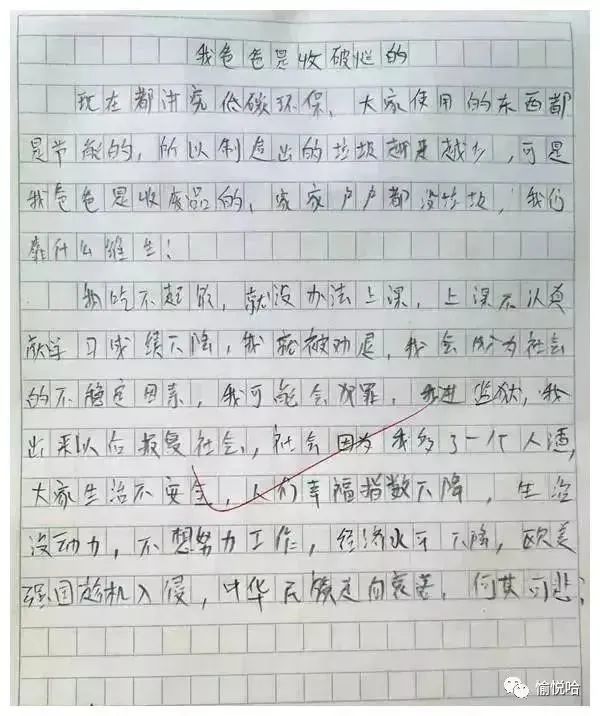 我爸爸是收破烂的
现在都讲究低碳环保，大家使用的东西都
是节能的，所以制造出的垃圾越来越少，可是
我爸爸是收废品的，家家户户都没垃圾，我们
靠什么维生！
我吃不起饭，就没办法上课，上课不认真
就学习成绩下降，我就被劝退，我会成为社会
的不稳定因素，我可能会犯罪，我进监狱，我
出来以后报复社会，社会因为我多了一个人渣，
大家生活不安全，人们幸福指数下降，生活
没动力，不想努力工作，经济水平下降，欧美
强国趁机入侵，中华民族走向衰落，何其可悲！
愉悦哈